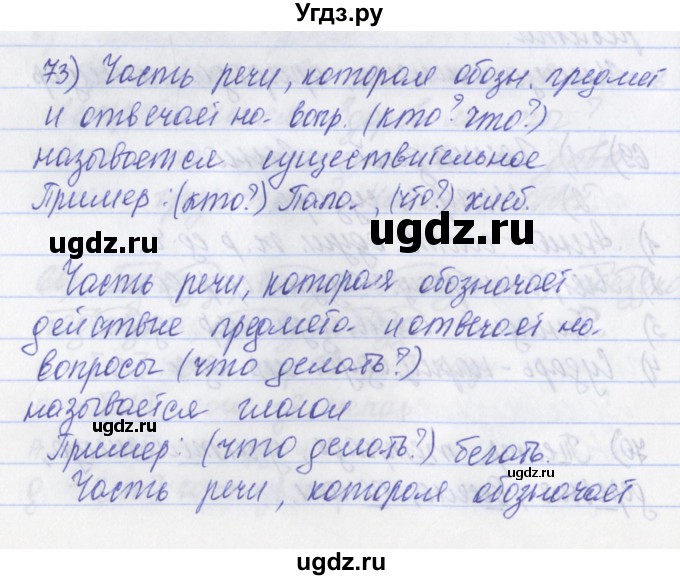 Угдз.ру
73) Часть речи, которая обозн. предмет
и отвечает на вопр. (кто? что?)
называется существительное
Пример: (кто?) Папа, (что?) хлеб.
ugdz.ru
ugdz.ru
Часть речи, которая обозначает
действие предмета и отвечает на
вопросы (что делать?)
называется глагол
Пример: (что делать?) бегать.
ugdz.ru
Часть речи, которая обозначает
ugdz.ru
ugdz.ru